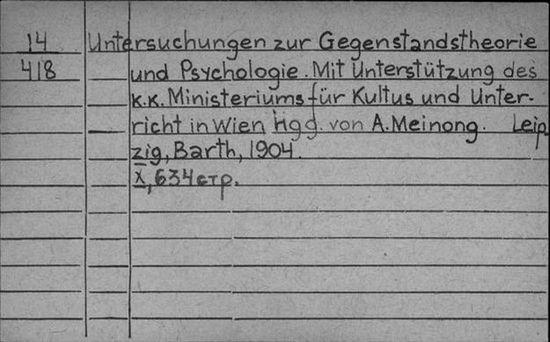 14 Untersuchungen zur Gegenstandstheorie
418 und Psychologie. Mit Unterstützung des
k.k. Ministeriums für Kultus und Unter-
richt in Wien hgg. von A. Meinong. Leip
zig, Barth, 1904.
X, 634 стр.